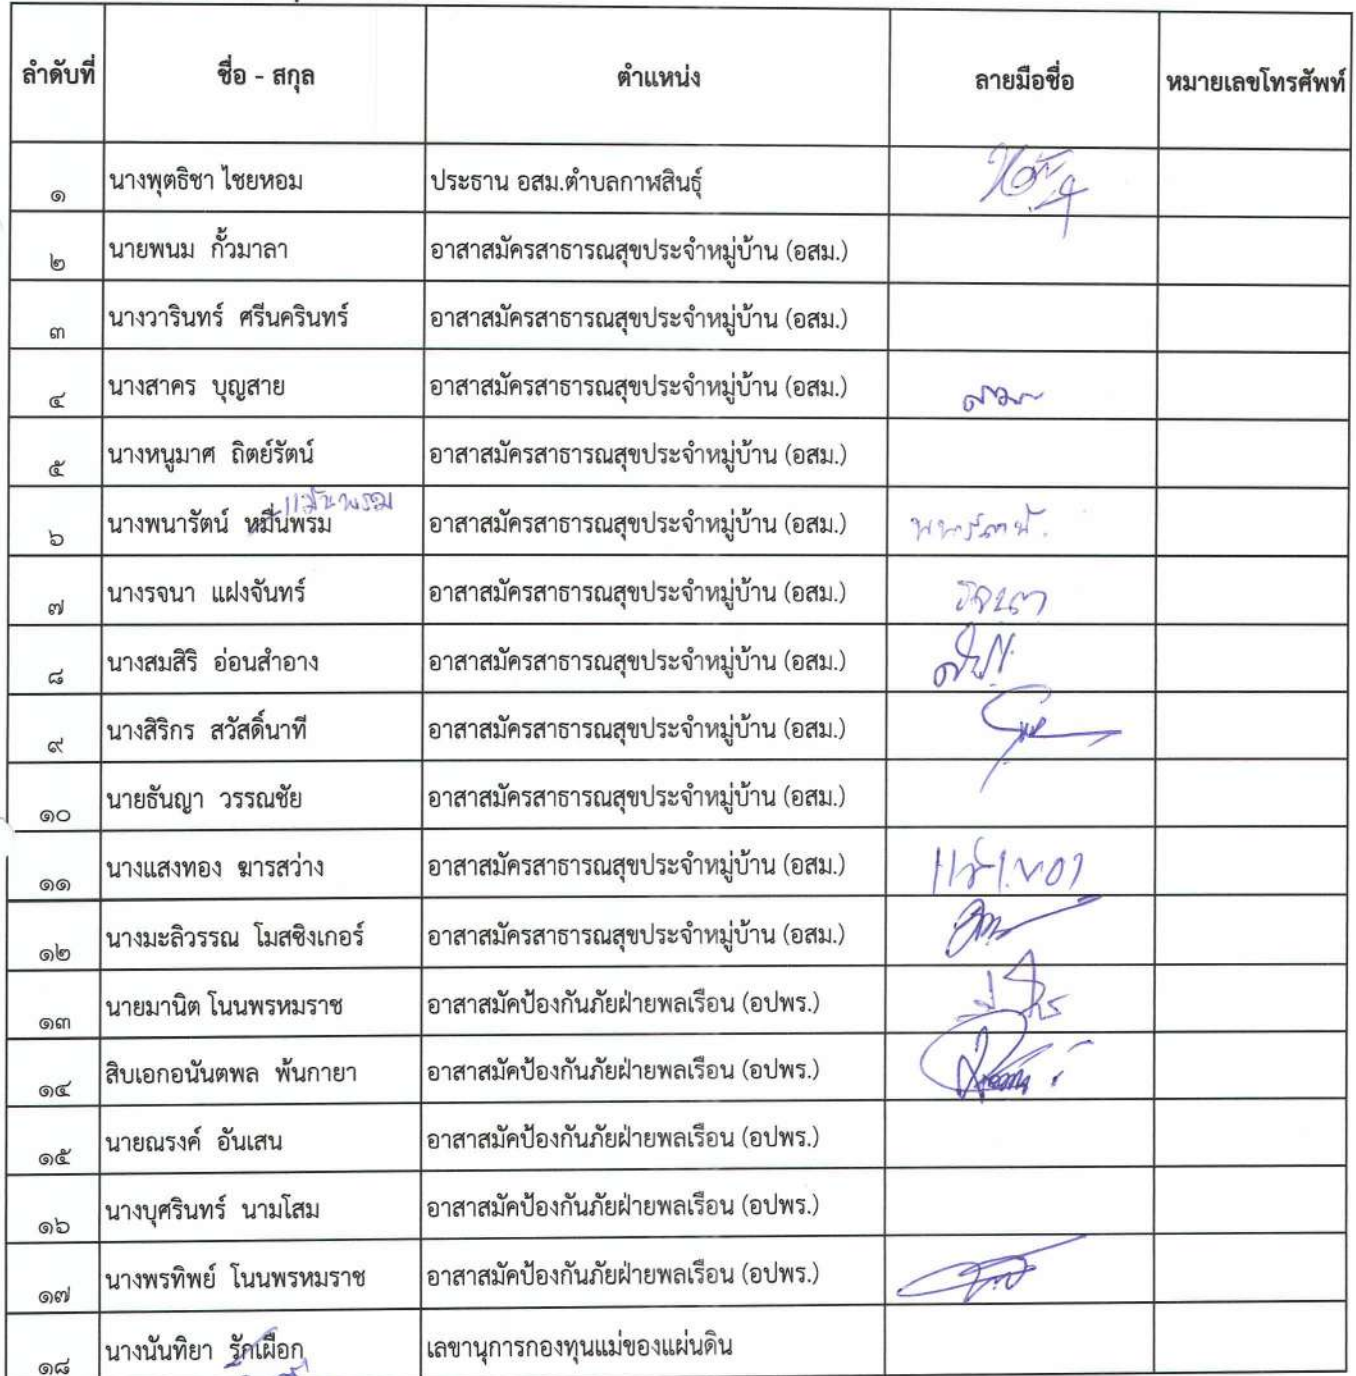 ลำดับที่ ชื่อ - สกุล ตำแหน่ง ลายมือชื่อ หมายเลขโทรศัพท์
๑ นางพุตธิชา ไชยหอม ประธาน อสม.ตำบลกาฬสินธุ์
๒ นายพนม กั้วมาลา อาสาสมัครสาธารณสุขประจำหมู่บ้าน (อสม.)
๓ นางวารินทร์ ศรีนครินทร์ อาสาสมัครสาธารณสุขประจำหมู่บ้าน (อสม.)
๔ นางสาคร บุญสาย อาสาสมัครสาธารณสุขประจำหมู่บ้าน (อสม.)
๕ นางหนูมาศ ถิตย์รัตน์ อาสาสมัครสาธารณสุขประจำหมู่บ้าน (อสม.)
แม้นพรม
๖ นางพนารัตน์ หมื่นพรม อาสาสมัครสาธารณสุขประจำหมู่บ้าน (อสม.) พนารัตน์
๗ นางรจนา แฝงจันทร์ อาสาสมัครสาธารณสุขประจำหมู่บ้าน (อสม.) รจนา
๘ นางสมสิริ อ่อนสำอาง อาสาสมัครสาธารณสุขประจำหมู่บ้าน (อสม.)
๙ นางสิริกร สวัสดิ์นาที อาสาสมัครสาธารณสุขประจำหมู่บ้าน (อสม.)
๑๐ นายธันญา วรรณชัย อาสาสมัครสาธารณสุขประจำหมู่บ้าน (อสม.)
๑๑ นางแสงทอง ฆารสว่าง อาสาสมัครสาธารณสุขประจำหมู่บ้าน (อสม.) แสงทอง
๑๒ นางมะลิวรรณ โมสซิงเกอร์ อาสาสมัครสาธารณสุขประจำหมู่บ้าน (อสม.)
๑๓ นายมานิต โนนพรหมราช อาสาสมัคป้องกันภัยฝ่ายพลเรือน (อปพร.)
๑๔ สิบเอกอนันตพล พ้นกายา อาสาสมัคป้องกันภัยฝ่ายพลเรือน (อปพร.)
๑๕ นายณรงค์ อันเสน อาสาสมัคป้องกันภัยฝ่ายพลเรือน (อปพร.)
๑๖ นางบุศรินทร์ นามโสม อาสาสมัคป้องกันภัยฝ่ายพลเรือน (อปพร.)
๑๗ นางพรทิพย์ โนนพรหมราช อาสาสมัคป้องกันภัยฝ่ายพลเรือน (อปพร.)
๑๘ นางนันทิยา รักเผือก เลขานุการกองทุนแม่ของแผ่นดิน